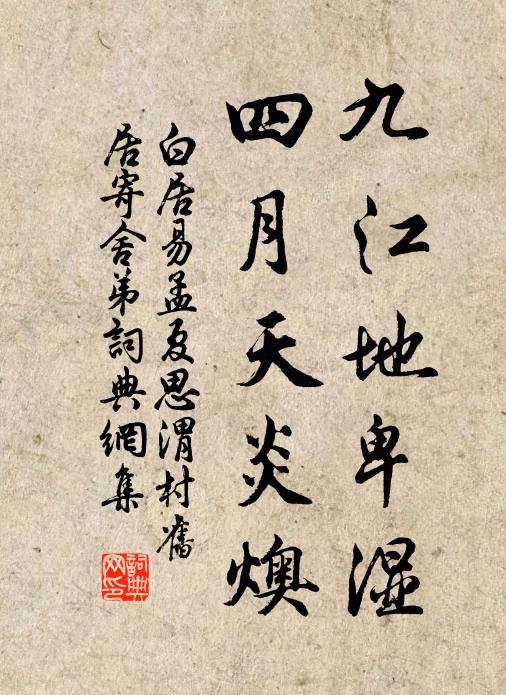 九江地卑湿
四月天炎燠
白居易孟夏思渭村舊
居寄舍弟詞典網集
詞典
网印